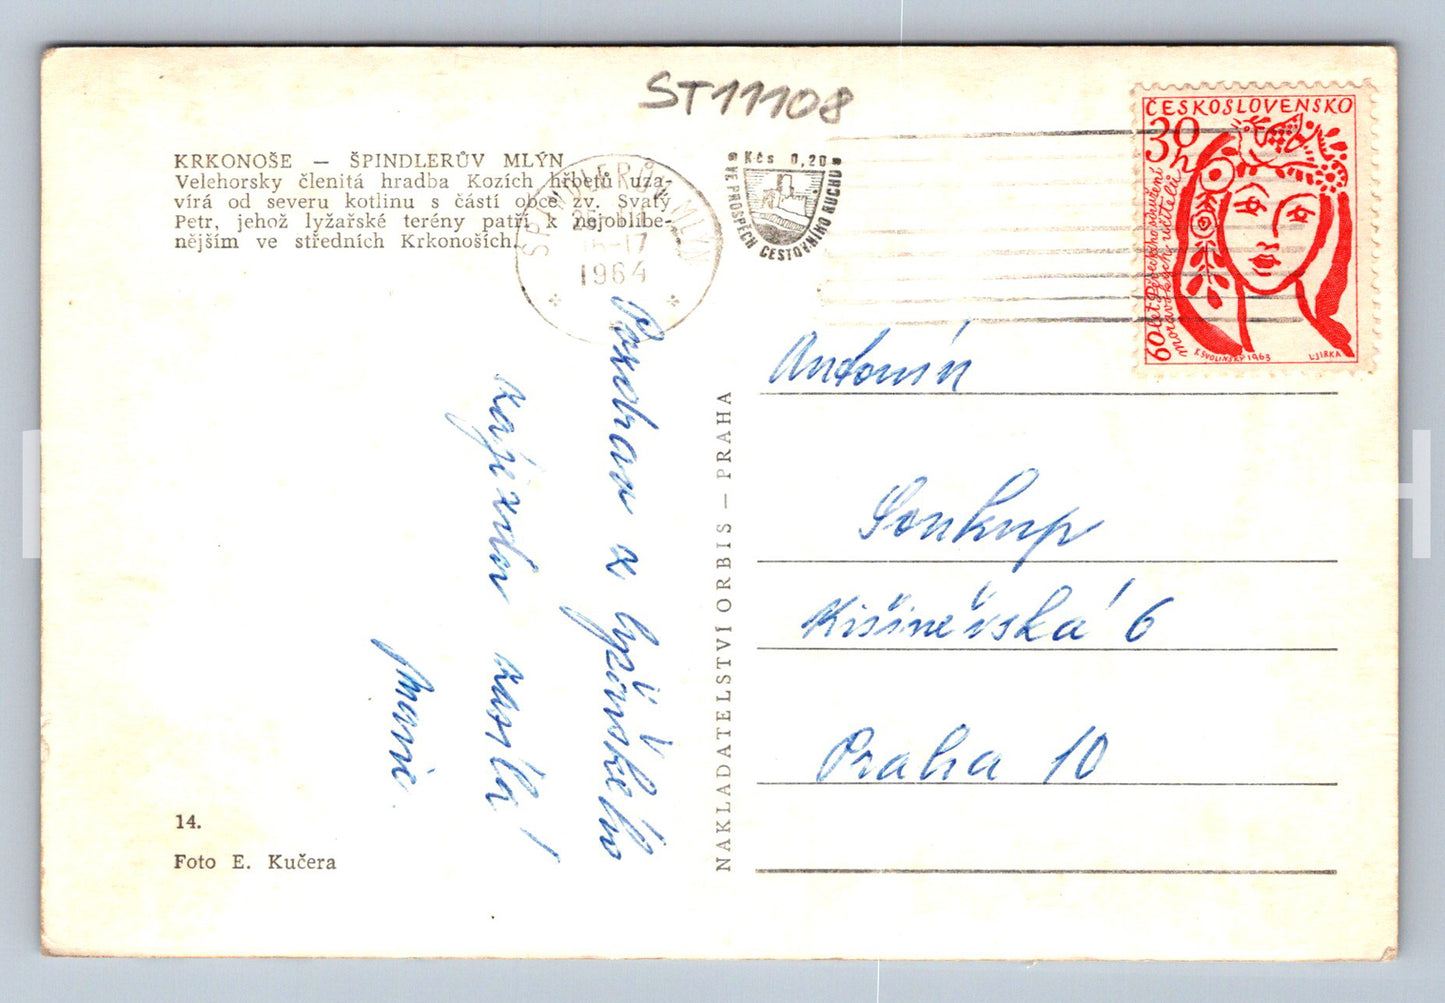 ST11108
KRKONOŠE — ŠPINDLERŮV MLÝN
Velehorsky členitá hradba Kozích hřbetů uza-
vírá od severu kotlinu s částí obce zv. Svatý
Petr, jehož lyžařské terény patří k nejoblíbe-
nějším ve středních Krkonoších.
ŠPINDLERŮV MLÝN
16-17
1964
Kčs 0,20
VE PROSPĚCH CESTOVNÍHO RUCHU
ČESKOSLOVENSKO
30 h
60 let Pěveckého sdružení
moravských učitelů
K.SVOLINSKÝ 1963
L.JIRKA
Pozdrav z lyžařského
zájezdu zasílá
Marie
NAKLADATELSTVÍ ORBIS — PRAHA
Antonín
Soukup
Kišiněvská 6
Praha 10
14.
Foto E. Kučera